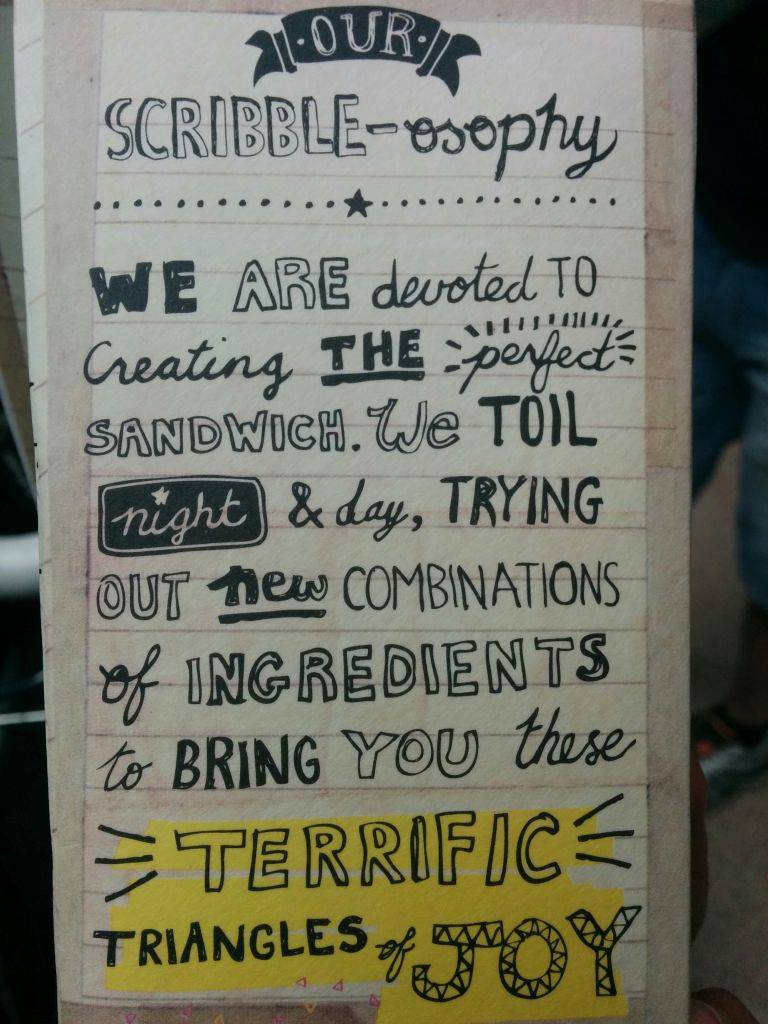 OUR
SCRIBBLE-osophy
WE ARE devoted TO
Creating THE perfect
SANDWICH. We TOIL
night & day, TRYING
OUT new COMBINATIONS
of INGREDIENTS
to BRING YOU these
TERRIFIC
TRIANGLES of JOY